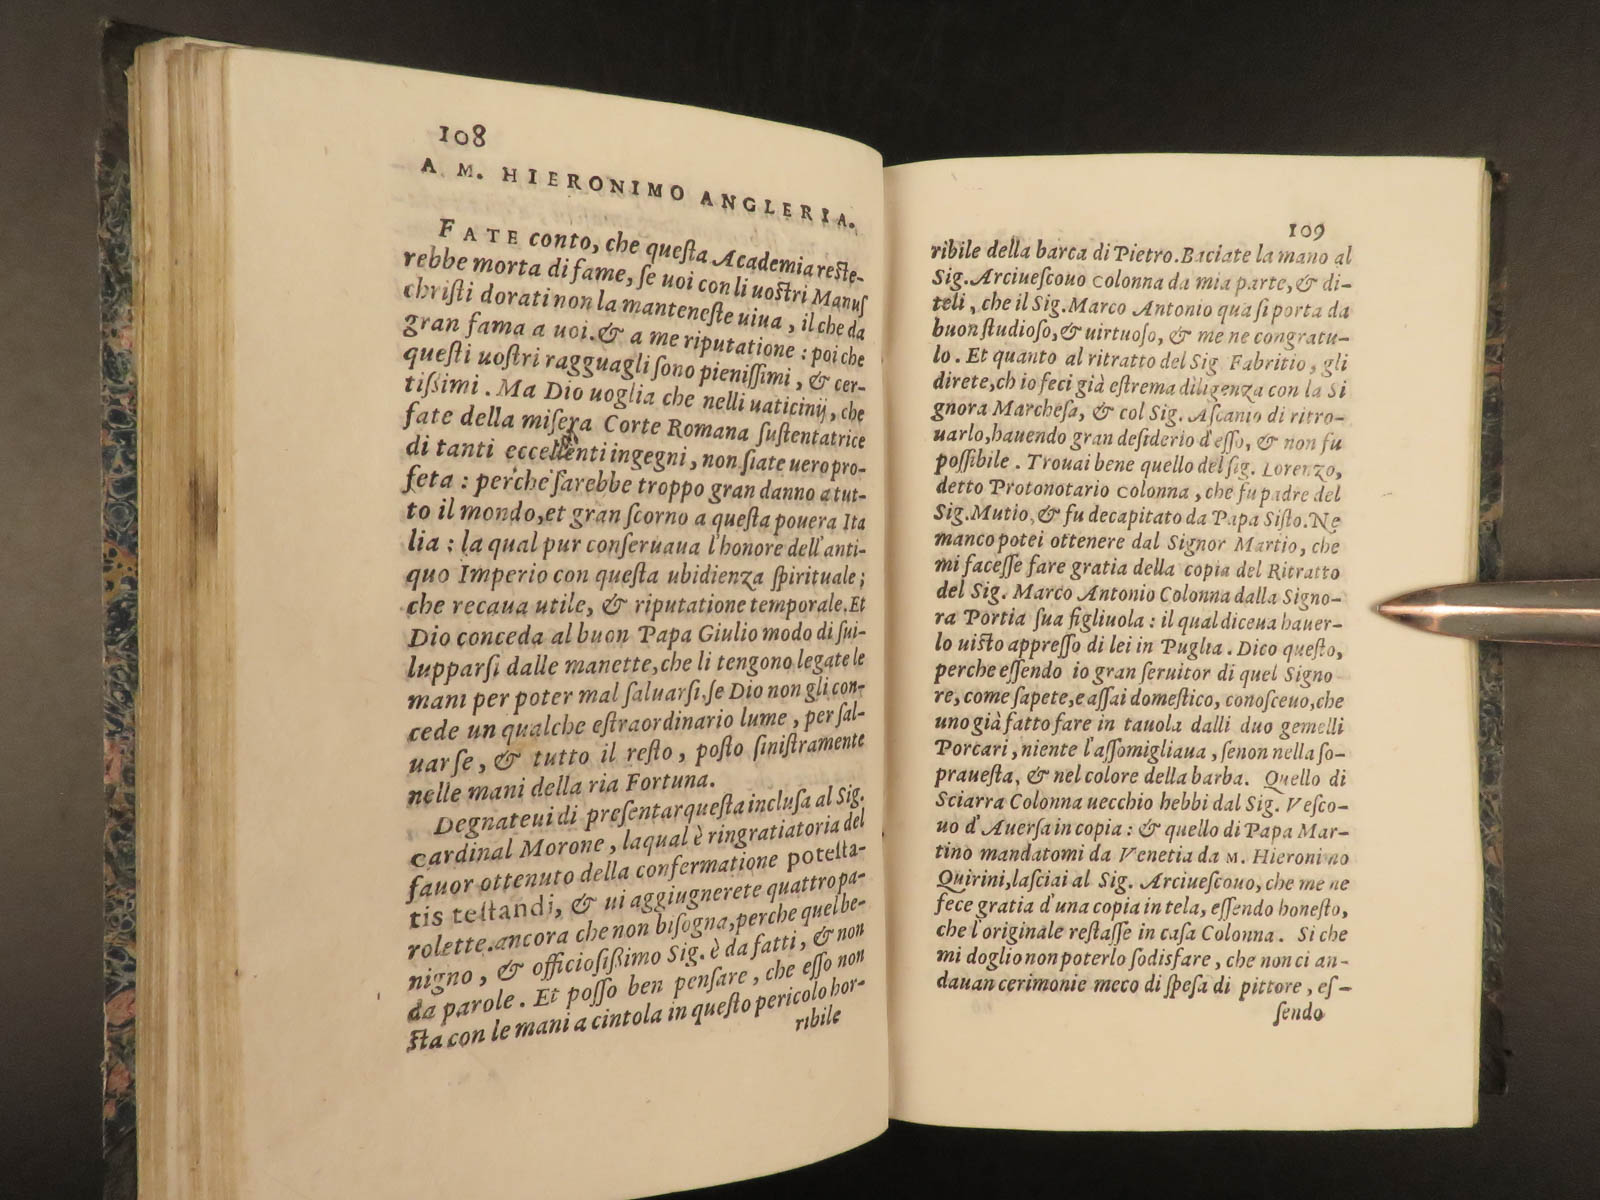 108
A M. HIERONIMO ANGLERIA.
FATE conto, che queſta Academia reſte-
rebbe morta di fame, ſe uoi con li uoſtri Manuſ
chriſti dorati non la manteneſte uiua, il che da
gran fama a uoi. & a me riputatione : poi che
queſti uoſtri ragguagli ſono pieniſſimi, & cer-
tiſsimi. Ma Dio uoglia che nelli uaticinij, che
fate della miſera Corte Romana ſuſtentatrice
di tanti eccellenti ingegni, non ſiate uero pro-
feta : perche ſarebbe troppo gran danno a tut-
to il mondo, et gran ſcorno a queſta pouera Ita
lia : la qual pur conſeruaua l'honore dell'anti-
quo Imperio con queſta ubidienza ſpirituale;
che recaua utile, & riputatione temporale. Et
Dio conceda al buon Papa Giulio modo di ſui-
lupparſi dalle manette, che li tengono legate le
mani per poter mal ſaluarſi. ſe Dio non gli con-
cede un qualche eſtraordinario lume, per ſal-
uarſe, & tutto il reſto, poſto ſiniſtramente
nelle mani della ria Fortuna.
Degnateui di preſentar queſta incluſa al Sig.
Cardinal Morone, laqual è ringratiatoria del
fauor ottenuto della confermatione poteſta-
tis teſtandi, & ui aggiugnerete quattro pa-
rolette. ancora che non biſogna, perche quel be-
nigno, & officioſiſsimo Sig. è da fatti, & non
da parole. Et poſſo ben penſare, che eſſo non
ſta con le mani a cintola in queſto pericolo hor-
ribile
109
ribile della barca di Pietro. Baciate la mano al
Sig. Arciueſcouo Colonna da mia parte, & di-
teli, che il Sig. Marco Antonio qua ſi porta da
buon ſtudioſo, & uirtuoſo, & me ne congratu-
lo. Et quanto al ritratto del Sig Fabritio, gli
direte, ch io feci già eſtrema diligenza con la Si
gnora Marcheſa, & col Sig. Aſcanio di ritro-
uarlo, hauendo gran deſiderio d'eſſo, & non fu
poſſibile. Trouai bene quello del ſig. Lorenzo,
detto Protonotario Colonna, che fu padre del
Sig. Mutio, & fu decapitato da Papa Siſto. Ne
manco potei ottenere dal Signor Martio, che
mi faceſſe fare gratia della copia del Ritratto
del Sig. Marco Antonio Colonna dalla Signo-
ra Portia ſua figliuola : il qual diceua hauer-
lo uiſto appreſſo di lei in Puglia. Dico queſto,
perche eſſendo io gran ſeruitor di quel Signo
re, come ſapete, e aſſai domeſtico, conoſceuo, che
uno già fatto fare in tauola dalli duo gemelli
Porcari, niente l'aſſomigliaua, ſenon nella ſo-
praueſta, & nel colore della barba. Quello di
Sciarra Colonna uecchio hebbi dal Sig. Veſco-
uo d'Auerſa in copia : & quello di Papa Mar-
tino mandatomi da Venetia da M. Hieronimo
Quirini, laſciai al Sig. Arciueſcouo, che me ne
fece gratia d'una copia in tela, eſſendo honeſto,
che l'originale reſtaſſe in caſa Colonna. Si che
mi doglio non poterlo ſodisfare, che non ci an-
dauan cerimonie meco di ſpeſa di pittore, eſ-
ſendo